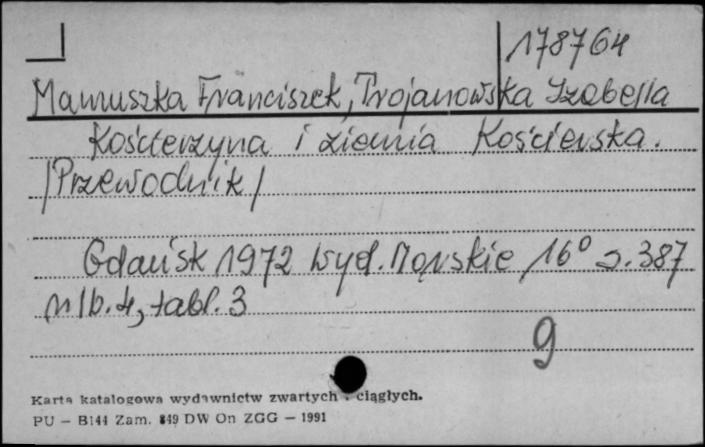 178764
Mamuszka Franciszek, Trojanowska Izabella
Kościerzyna i ziemia Kościerska.
/Przewodnik/
Gdańsk 1972 Wyd. Morskie 16° s. 387
nlb. 4, tabl. 3
g
Karta katalogowa wydawnictw zwartych i ciągłych.
PU — B144 Zam. 849 DW On ZGG — 1991